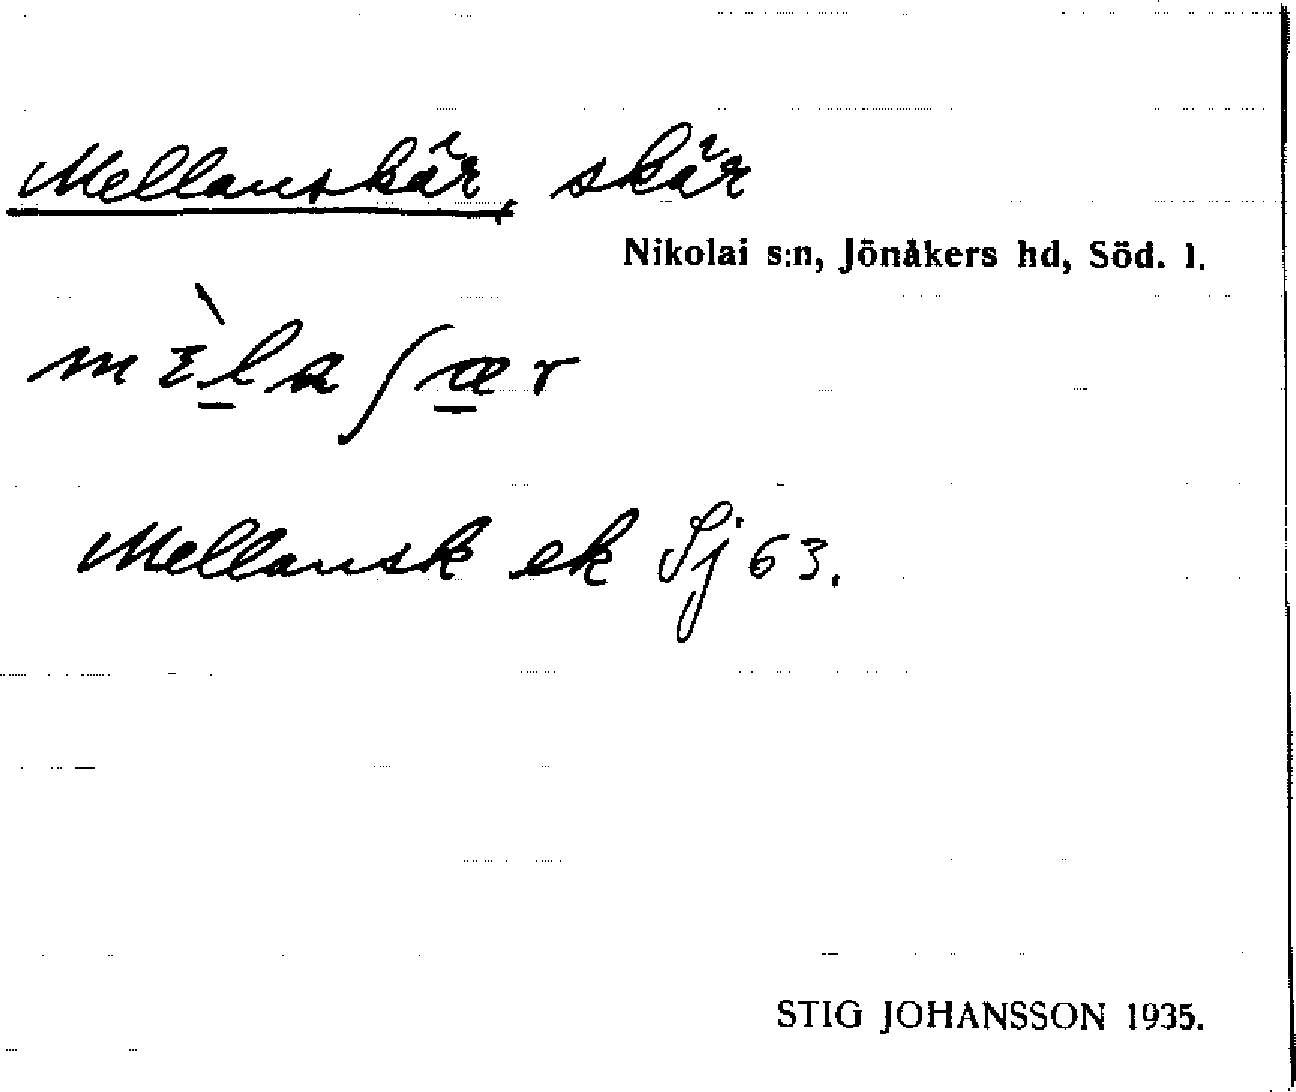 Mellanskär, skär
Nikolai s:n, Jönåkers hd, Söd. l.
mɛ̀la ʃær
Mellansk ek Sj 63.
STIG JOHANSSON 1935.